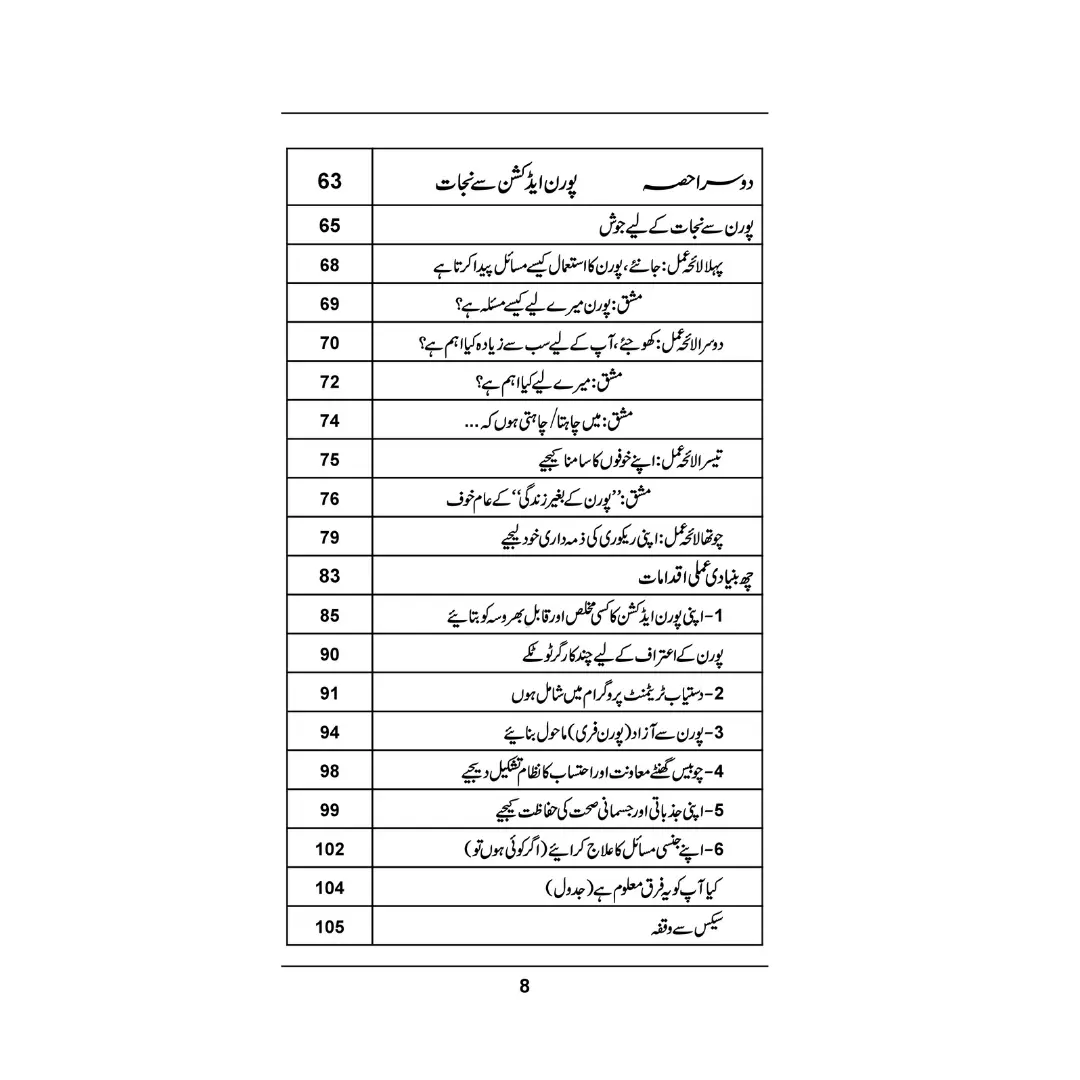 دوسرا حصہ پورن ایڈکشن سے نجات 63
پورن سے نجات کے لیے جوش 65
پہلا لائحہ عمل: جانئے، پورن کا استعمال کیسے مسائل پیدا کرتا ہے 68
مشق: پورن میرے لیے کیسے مسئلہ ہے؟ 69
دوسرا لائحہ عمل: کھوجئے، آپ کے لیے سب سے زیادہ کیا اہم ہے؟ 70
مشق: میرے لیے کیا اہم ہے؟ 72
مشق: میں چاہتا/ چاہتی ہوں کہ ... 74
تیسرا لائحہ عمل: اپنے خوفوں کا سامنا کیجیے 75
مشق: ’’پورن کے بغیر زندگی‘‘ کے عام خوف 76
چوتھا لائحہ عمل: اپنی ریکوری کی ذمہ داری خود لیجیے 79
چھ بنیادی عملی اقدامات 83
1- اپنی پورن ایڈکشن کا کسی مخلص اور قابلِ بھروسہ کو بتائیے 85
پورن کے اعتراف کے لیے چند کارگر ٹوٹکے 90
2- دستیاب ٹریٹمنٹ پروگرام میں شامل ہوں 91
3- پورن سے آزاد (پورن فری) ماحول بنائیے 94
4- چوبیس گھنٹے معاونت اور احتساب کا نظام تشکیل دیجیے 98
5- اپنی جذباتی اور جسمانی صحت کی حفاظت کیجیے 99
6- اپنے جنسی مسائل کا علاج کرائیے (اگر کوئی ہوں تو) 102
کیا آپ کو یہ فرق معلوم ہے (جدول) 104
سیکس سے وقفہ 105
8